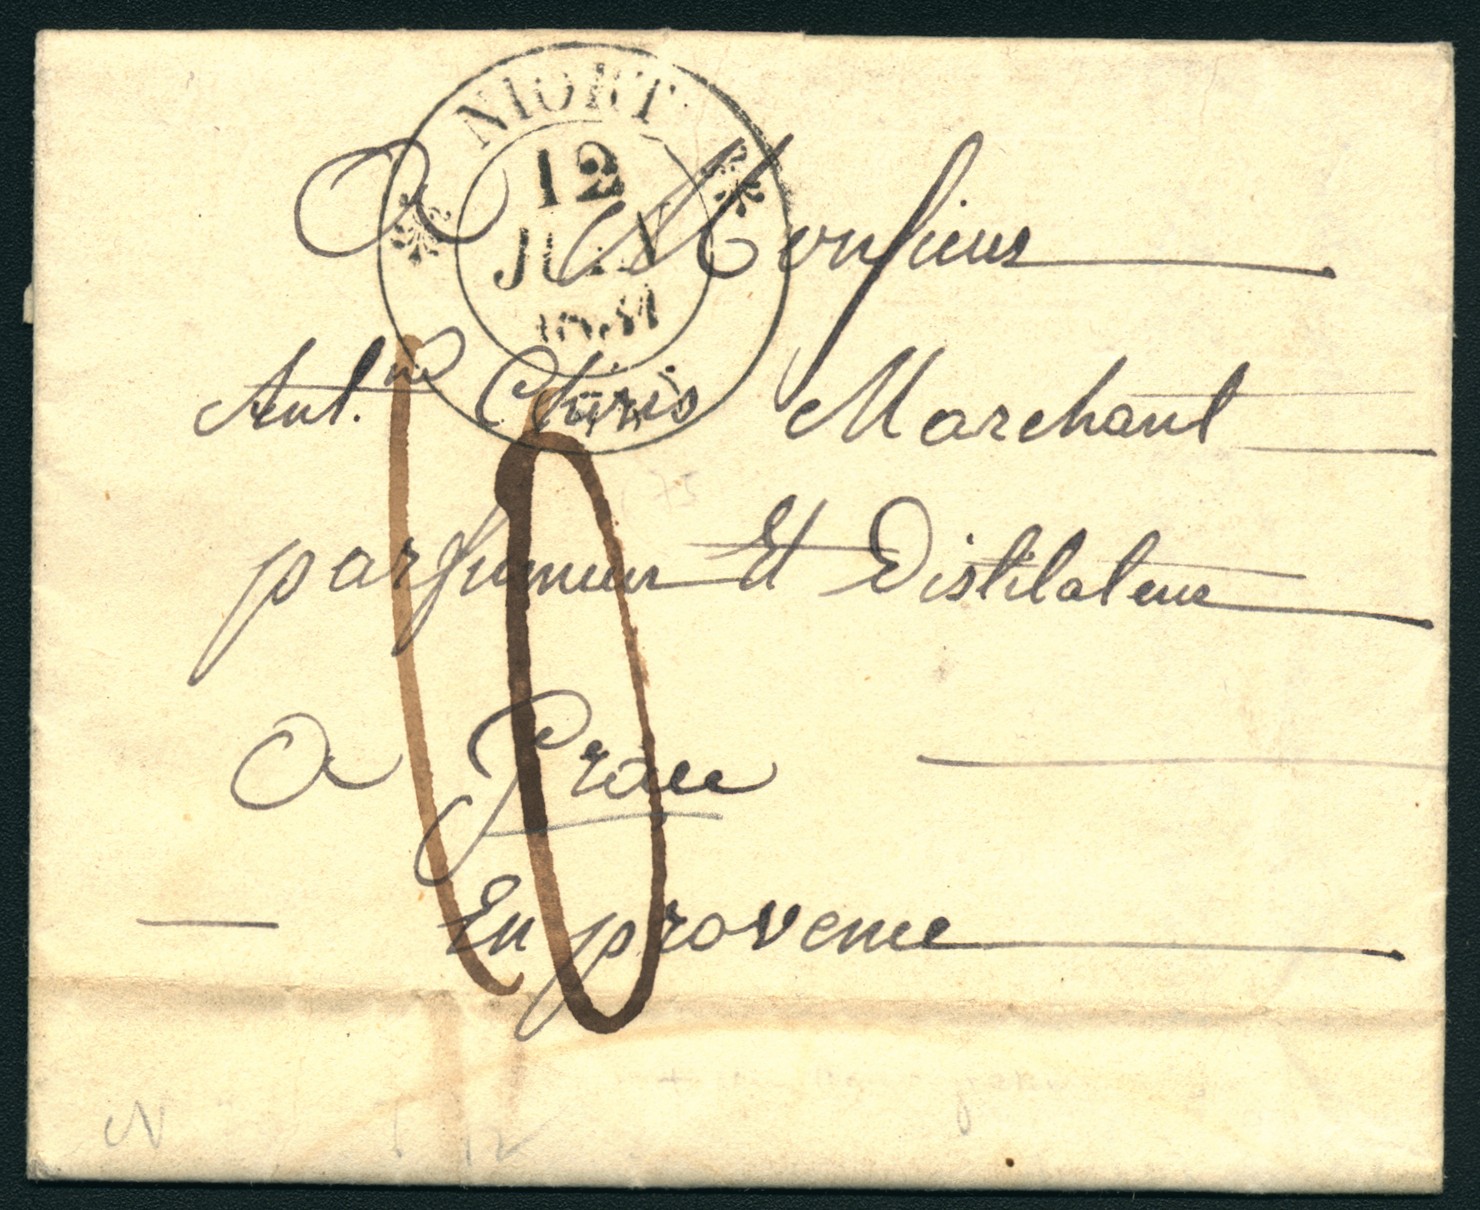 NIORT
12
JUIN
A Monsieur
Ant.ne Chiris Marchant
parfumeur Et Distilateur
A Grasse
En provence
10
75
12